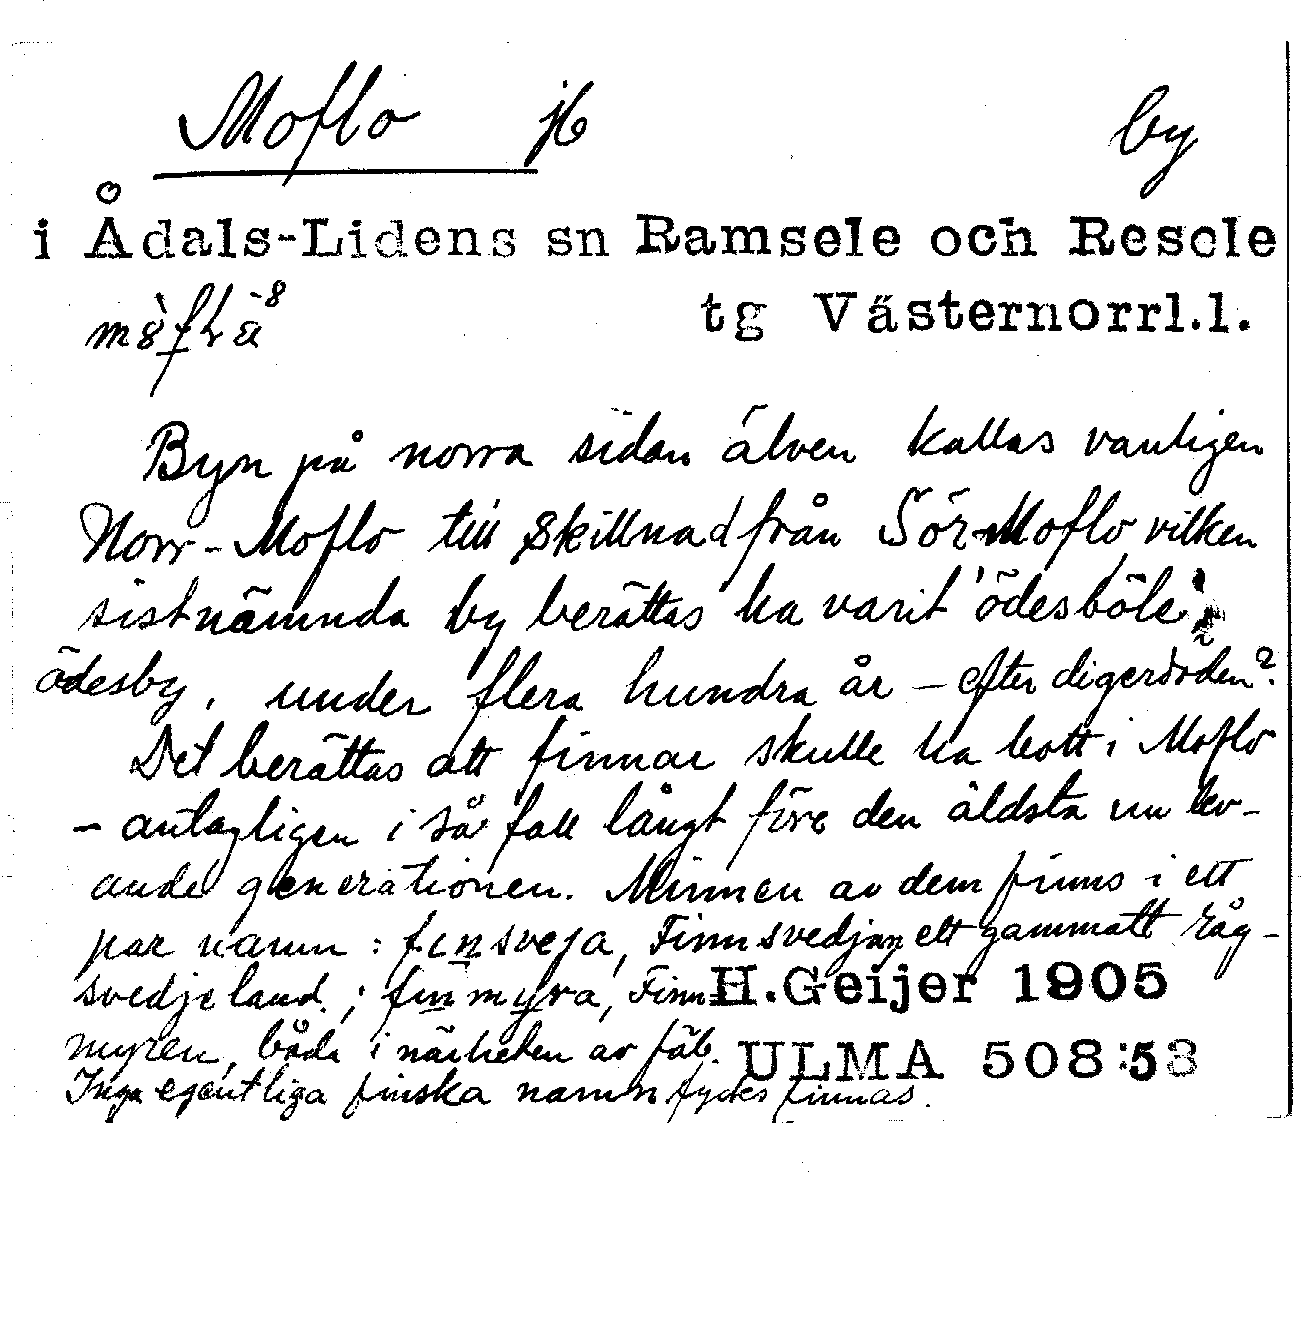 Moflo jb by
i Ådals-Lidens sn Ramsele och Resele
tg Västernorrl.l.
Byn på norra sidan älven kallas vanligen
Norr-Moflo till skillnad från Sör-Moflo, vilken
sistnämnda by berättas ha varit 'ödesböle',
ödesby, under flera hundra år – efter digerdöden?
Det berättas att finnar skulle ha bott i Moflo
– antagligen i så fall långt före den äldsta nu lev-
ande generationen. Minnen av dem finns i ett
par namn: finsveja, Finnsvedjan ett gammalt råg-
svedjeland; finmyra, Finn H. Geijer 1905
myren, båda i närheten av fäb. ULMA 508:53
Inga egentliga finska namn tycks finnas.